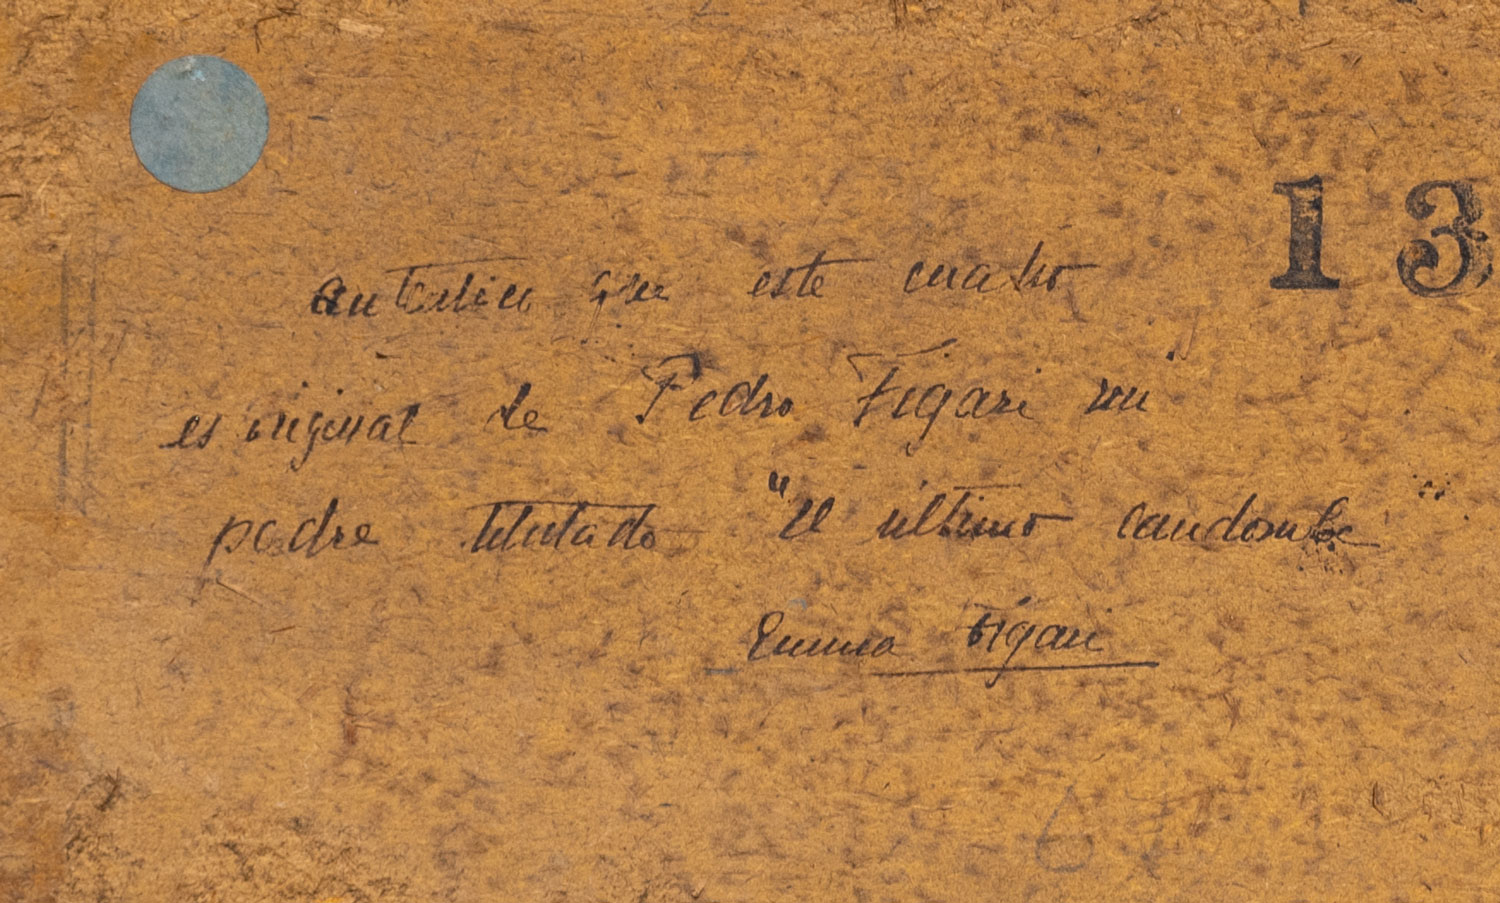 13
autentico que este cuadro
es original de Pedro Figari mi
padre titulado "El último candombe"
Emma Figari